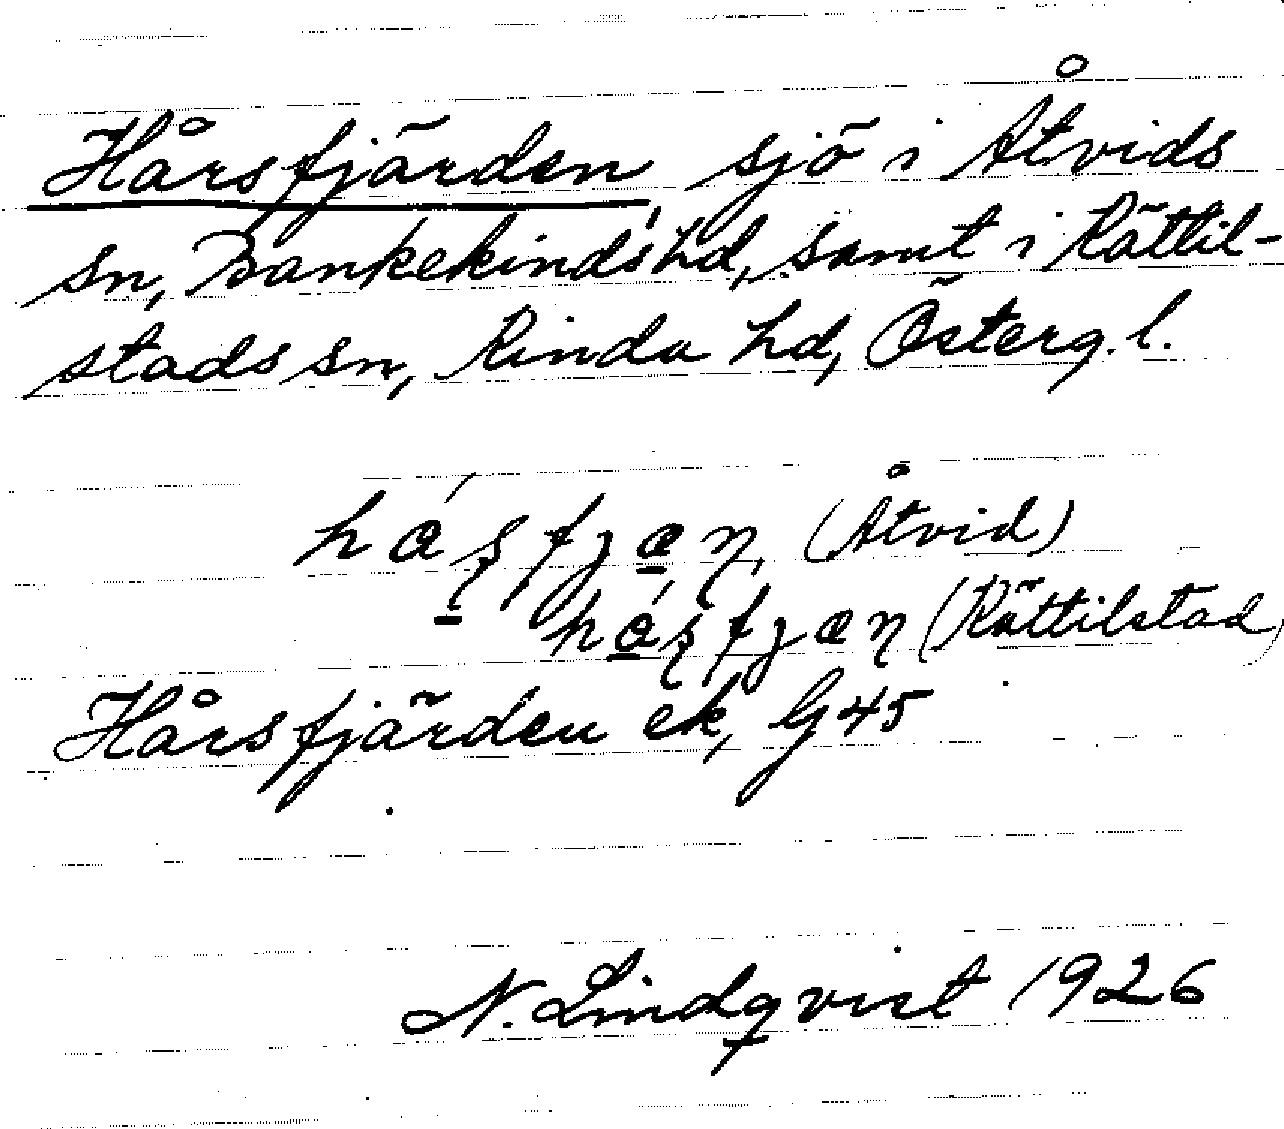 Hårsfjärden, sjö i Åtvids
sn, Bankekinds hd, samt i Rättil-
stads sn, Kinda hd, Österg.l.
(Åtvid)
(Rättilstad)
Hårsfjärden ek, G 45
N. Lindqvist 1926